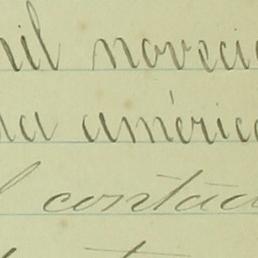 mil novecie
da américa
l contad